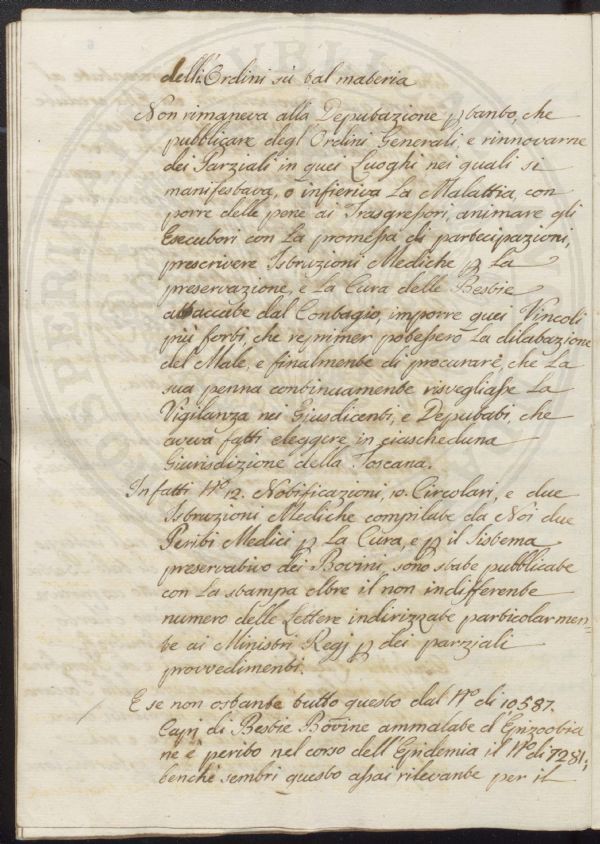 delli Ordini sù tal materia
Non rimaneva alla Deputazione p tanto, che
pubblicare degl'Ordini Generali, e rinnovarne
dei Parziali in quei Luoghi nei quali si
manifestava, o infieriva La Malattia, con
porre delle pene ai Trasgressori, animare gli
Esecutori con La promessa di partecipazioni,
prescrivere Istruzioni Mediche p La
preservazione, e La Cura delle Bestie
attaccate dal Contagio, imporre quei Vincoli
più forti, che reprimer potessero La dilatazione
del Male, e finalmente di procurare, che La
sua penna continuamente risvegliasse La
Vigilanza nei Giusdicenti, e Deputati, che
aveva fatti eleggere in ciascheduna
Giurisdizione della Toscana.
Infatti No 12. Notificazioni, 10. Circolari, e due
Istruzioni Mediche compilate da Noi due
Periti Medici p La Cura, e p il Sistema
preservativo dei Bovini, sono state pubblicate
con La stampa oltre il non indifferente
numero delle Lettere indirizzate particolarmen=
te ai Ministri Regj p dei parziali
provvedimenti.
E se non ostante tutto questo dal No di 10587.
Capi di Bestie Bovine ammalate d'Epizootia
ne è perito nel corso dell'Epidemia il No di 7281;
benchè sembri questo assai rilevante per il